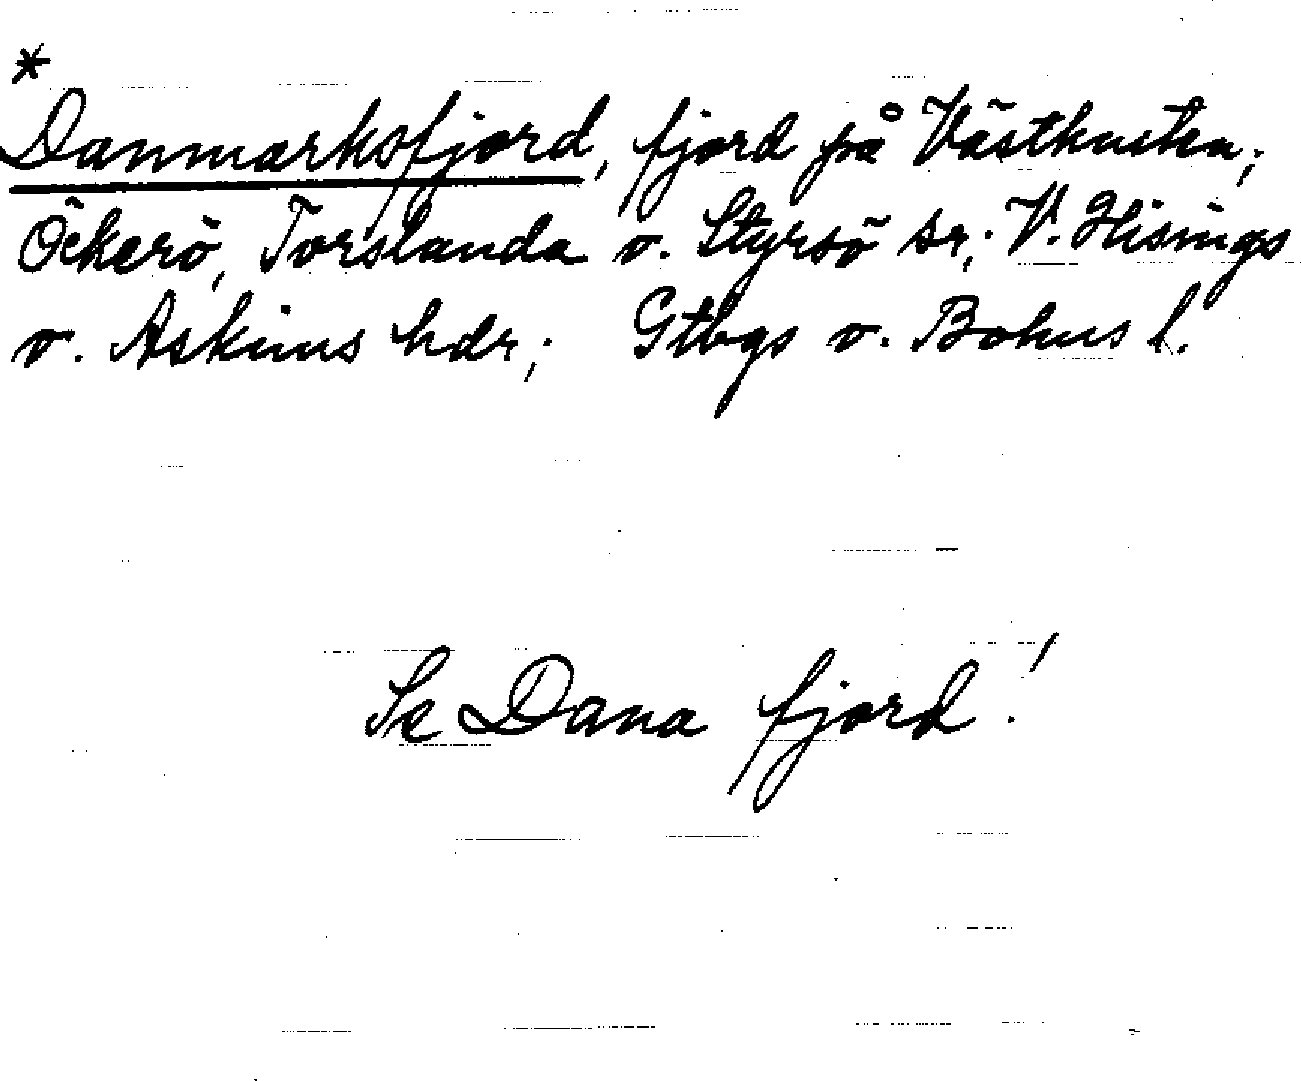 *
Danmarksfjord, fjord på Västkusten;
Öckerö, Torslanda o. Styrsö sr; V. Hisings
o. Askims hdr; Gtbgs o. Bohus l.
Se Dana fjord!